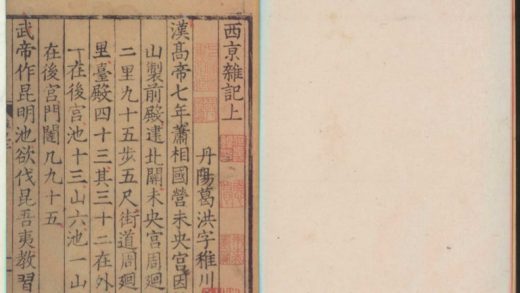 西亰雜記上
丹陽葛洪字稚川
漢髙帝七年蕭相國營未央宫因
山製前殿建北闕未央宫周廻
二里九十五步五尺街道周廻
里臺殿四十三其三十二在外
一在後宫池十三山六池一山
在後宫門闥凡九十五
武帝作昆明池欲伐昆吾夷教習